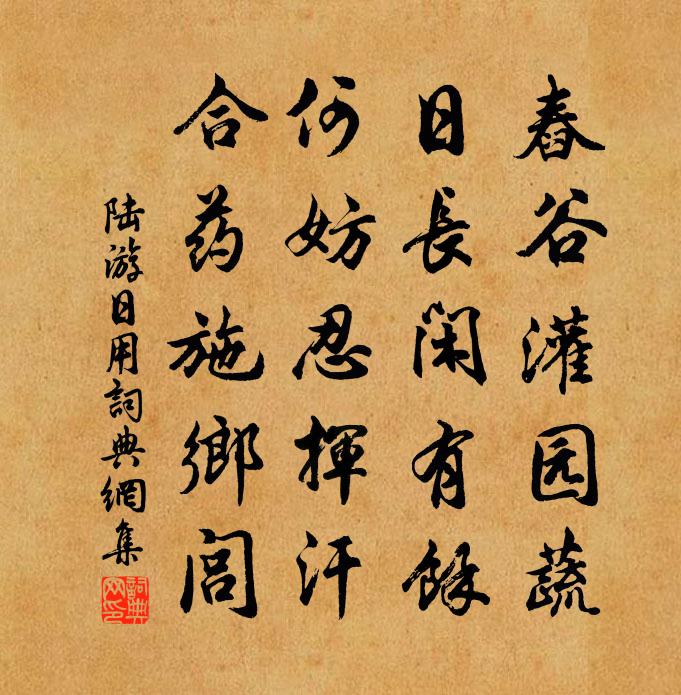 舂谷灌园蔬
日長閑有餘
何妨忍揮汗
合药施鄉闾
陆游日用詞典網集
詞典网印